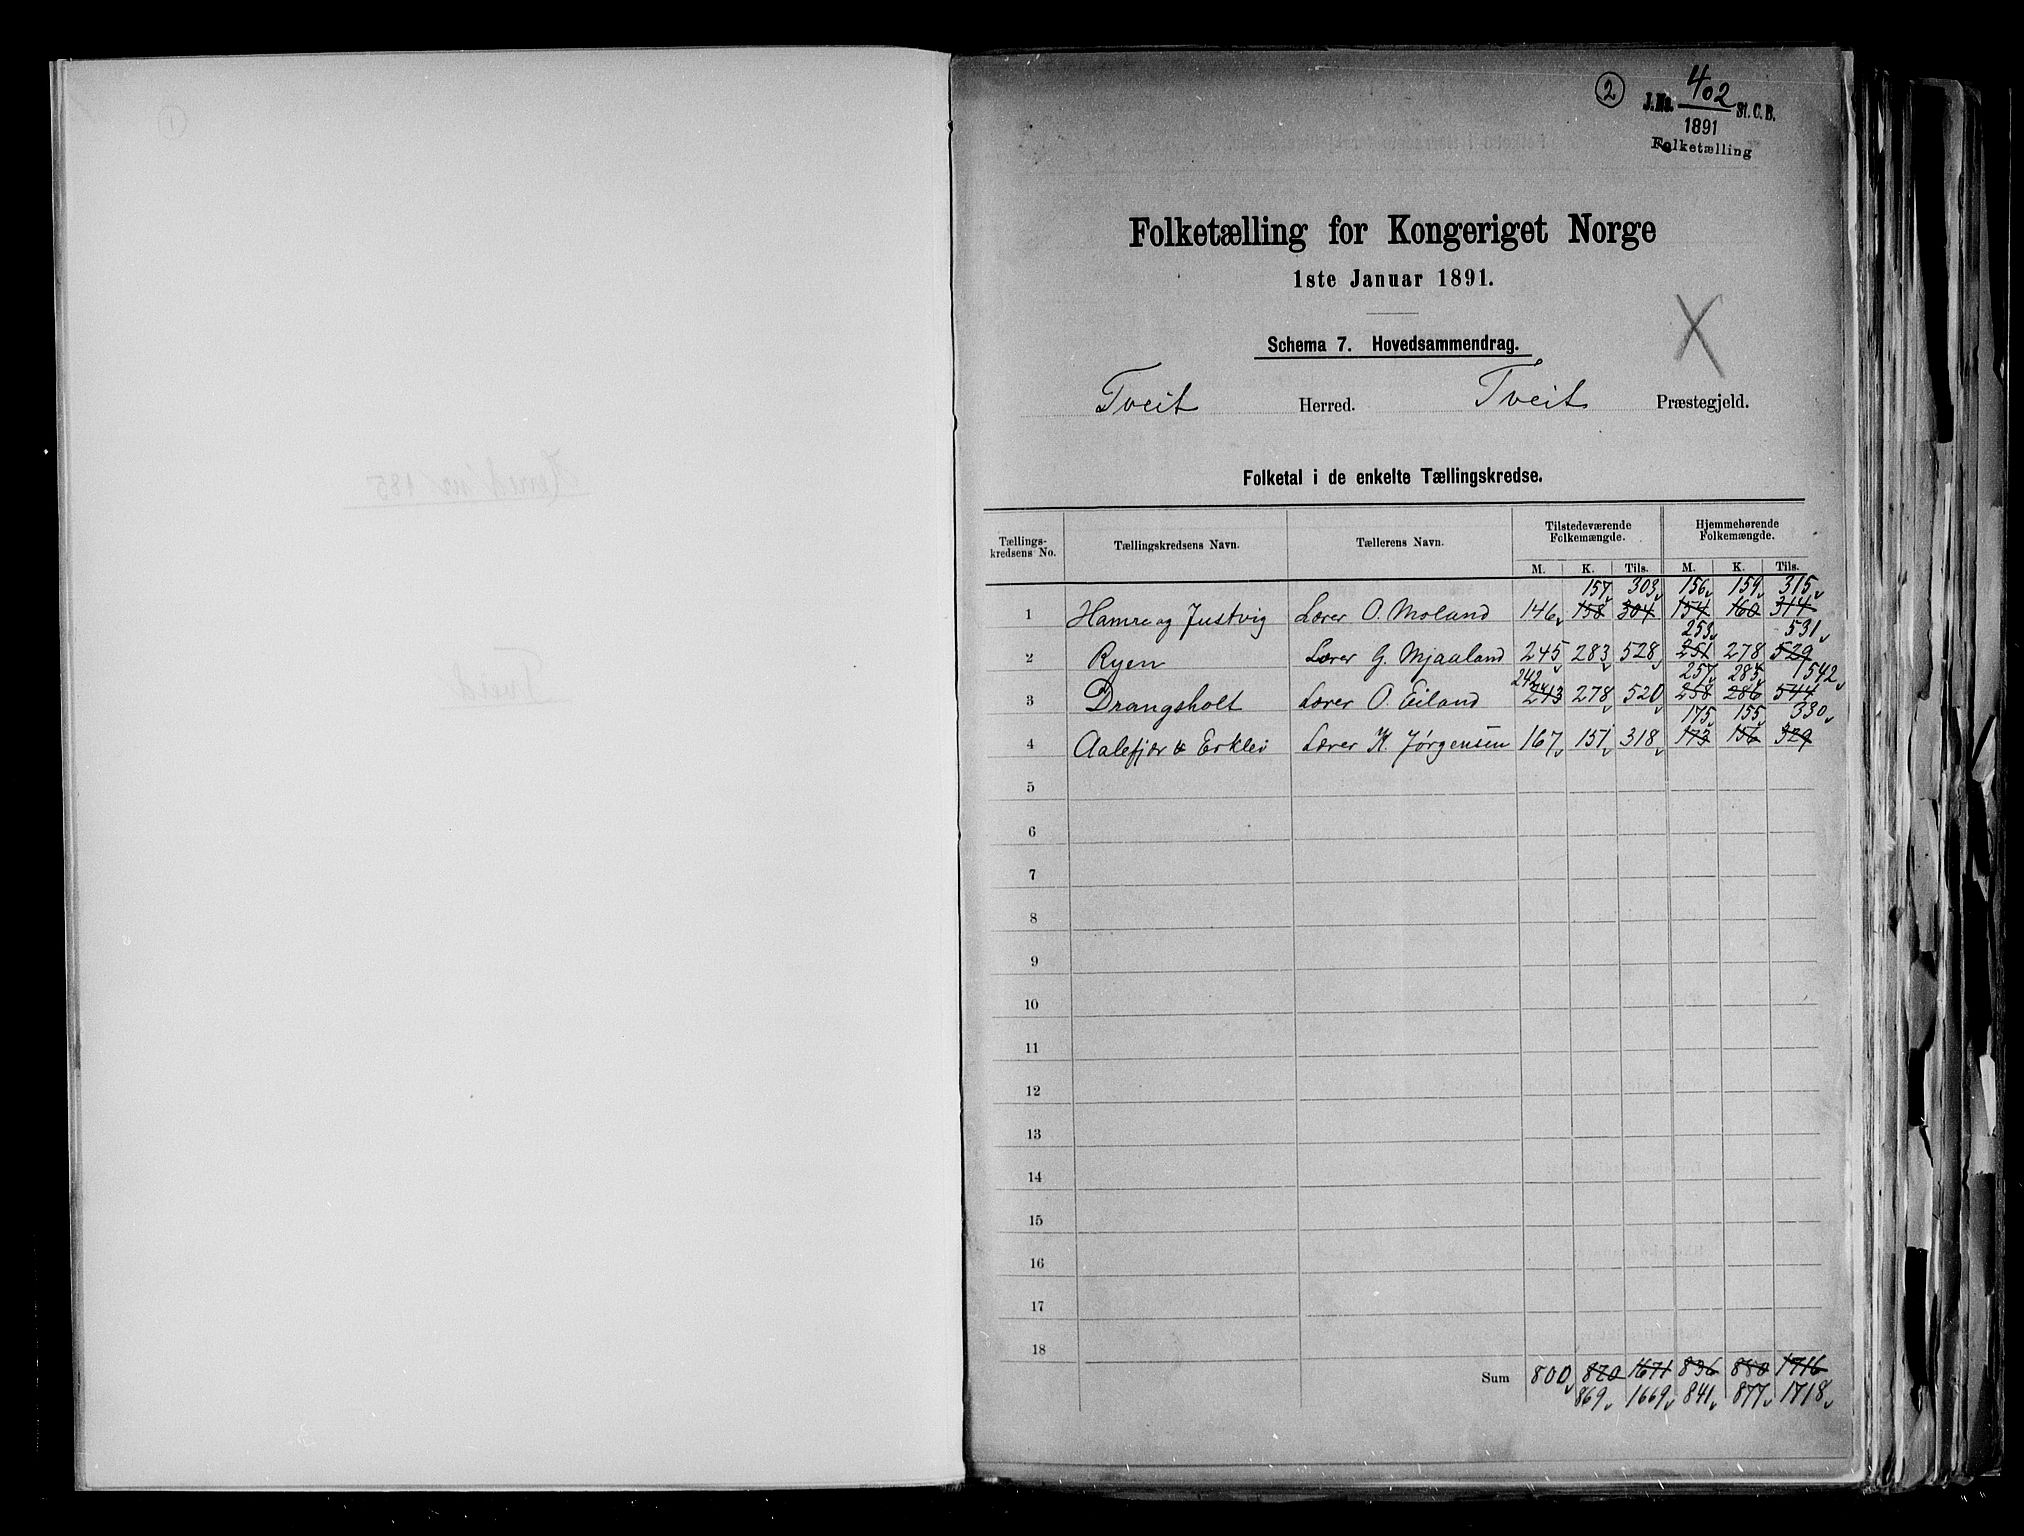 1
Herred nr 185
Tveid
2
J.No. 402 St. C. B.
1891
Folketælling
Folketælling for Kongeriget Norge
1ste Januar 1891.
Schema 7. Hovedsammendrag.
Tveit Herred. Tveit Præstegjeld.
Folketal i de enkelte Tællingskredse.
Tællings-kredsens No. Tællingskredsens Navn. Tællerens Navn. Tilstedeværende Folkemængde. Hjemmehørende Folkemængde.
M. K. Tils. M. K. Tils.
157 303 156 159 315
1 Hamre og Justvig Lærer O. Moland 146 158 304 154 160 314
253 531
2 Ryen Lærer G. Mjaaland 245 283 528 251 278 529
242 257 285 542
3 Drangsholt Lærer O. Eiland 243 278 520 258 286 544
175 155 330
4 Aalefjær & Erklei Lærer K. Jørgensen 167 151 318 173 156 329
5
6
7
8
9
10
11
12
13
14
15
16
17
18
Sum 800 870 1671 836 880 1716
869 1669 841 877 1718